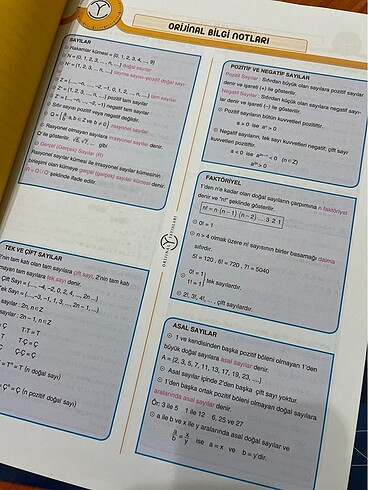 ORİJİNAL BİLGİ NOTLARI
SAYILAR
Rakamlar kümesi = {0, 1, 2, 3, 4, ..., 9}
N = {0, 1, 2, 3, ..., n, ...} doğal sayılar
N⁺ = {1, 2, 3, ..., n, ...} sayma sayısı-pozitif doğal sayı-
Z = {..., –n, ..., –2, –1, 0, 1, 2, ..., n, ...} tam sayılar
Z⁺ = {1, 2, 3, ..., n, ...} pozitif tam sayılar
Z⁻ = {..., –n, ..., –2, –1} negatif tam sayılar
Sıfır sayısı pozitif veya negatif değildir.
Q = {a/b : a, b ∈ Z ve b ≠ 0} rasyonel sayılar
Rasyonel olmayan sayılara irrasyonel sayılar denir.
Q' ile gösterilir √5, √7, ... gibi
Gerçel (Gerçek) Sayılar (R)
Rasyonel sayılar kümesi ile irrasyonel sayılar kümesinin
birleşimi olan kümeye gerçel (gerçek) sayılar kümesi denir.
R = Q ∪ Q' şeklinde ifade edilir.
TEK VE ÇİFT SAYILAR
tam katı olan tam sayılara çift sayı, 2'nin tam katı
olmayan tam sayılara tek sayı denir.
Çift Sayı = {..., –4, –2, 0, 2, 4, ..., 2n, ...}
Tek Sayı = {..., –3, –1, 1, 3, ..., 2n – 1, ...}
sayılar : 2n, n ∈ Z
sayılar : 2n – 1, n ∈ Z
T·T = T
T·Ç = Ç
Ç·Ç = Ç
Tⁿ = T (n doğal sayı)
Çⁿ = Ç (n pozitif doğal sayı)
ORİJİNAL YAYINLARI
POZİTİF VE NEGATİF SAYILAR
Pozitif Sayılar : Sıfırdan büyük olan sayılara pozitif sayılar
denir ve işareti (+) ile gösterilir.
Negatif Sayılar: Sıfırdan küçük olan sayılara negatif sayı-
lar denir ve işareti (–) ile gösterilir.
Pozitif sayıların bütün kuvvetleri pozitiftir.
a > 0 ise aⁿ > 0
Negatif sayıların, tek sayı kuvvetleri negatif; çift sayı
kuvvetleri pozitiftir.
a < 0 ise a²ⁿ⁻¹ < 0 (n ∈ Z)
a²ⁿ > 0
FAKTÖRİYEL
1'den n'e kadar olan doğal sayıların çarpımına n faktöriyel
denir ve "n!" şeklinde gösterilir.
n! = n·(n–1)·(n–2)·...·3·2·1
0! = 1
n > 4 olmak üzere n! sayısının birler basamağı daima
sıfırdır.
5! = 120 , 6! = 720 , 7! = 5040
0! = 1
1! = 1 } tek sayılardır.
2!, 3!, 4!, ... , çift sayılardır.
ASAL SAYILAR
1 ve kendisinden başka pozitif böleni olmayan 1'den
büyük doğal sayılara asal sayılar denir.
A = {2, 3, 5, 7, 11, 13, 17, 19, 23, ....}
Asal sayılar içinde 2'den başka çift sayı yoktur.
1'den başka ortak pozitif böleni olmayan doğal sayılara
aralarında asal sayılar denir.
Ör: 3 ile 5 1 ile 12 6, 25 ve 27
a ile b ve x ile y aralarında asal doğal sayılar ve
a/b = x/y ise a = x ve b = y'dir.